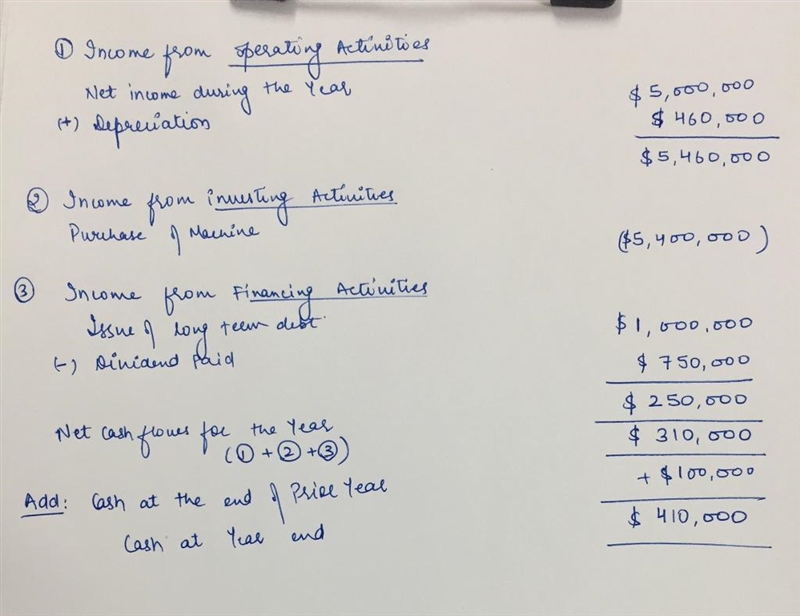 ① Income from Operating Activities
Net income during the Year $5,000,000
(+) Depreciation $460,000
$5,460,000
② Income from investing Activities
Purchase of Machine ($5,400,000)
③ Income from Financing Activities
Issue of long term debt $1,000,000
(-) Dividend Paid $750,000
$250,000
Net Cash flows for the Year $310,000
(①+②+③)
+ $100,000
Add: Cash at the end of Prior Year
$410,000
Cash at Year end